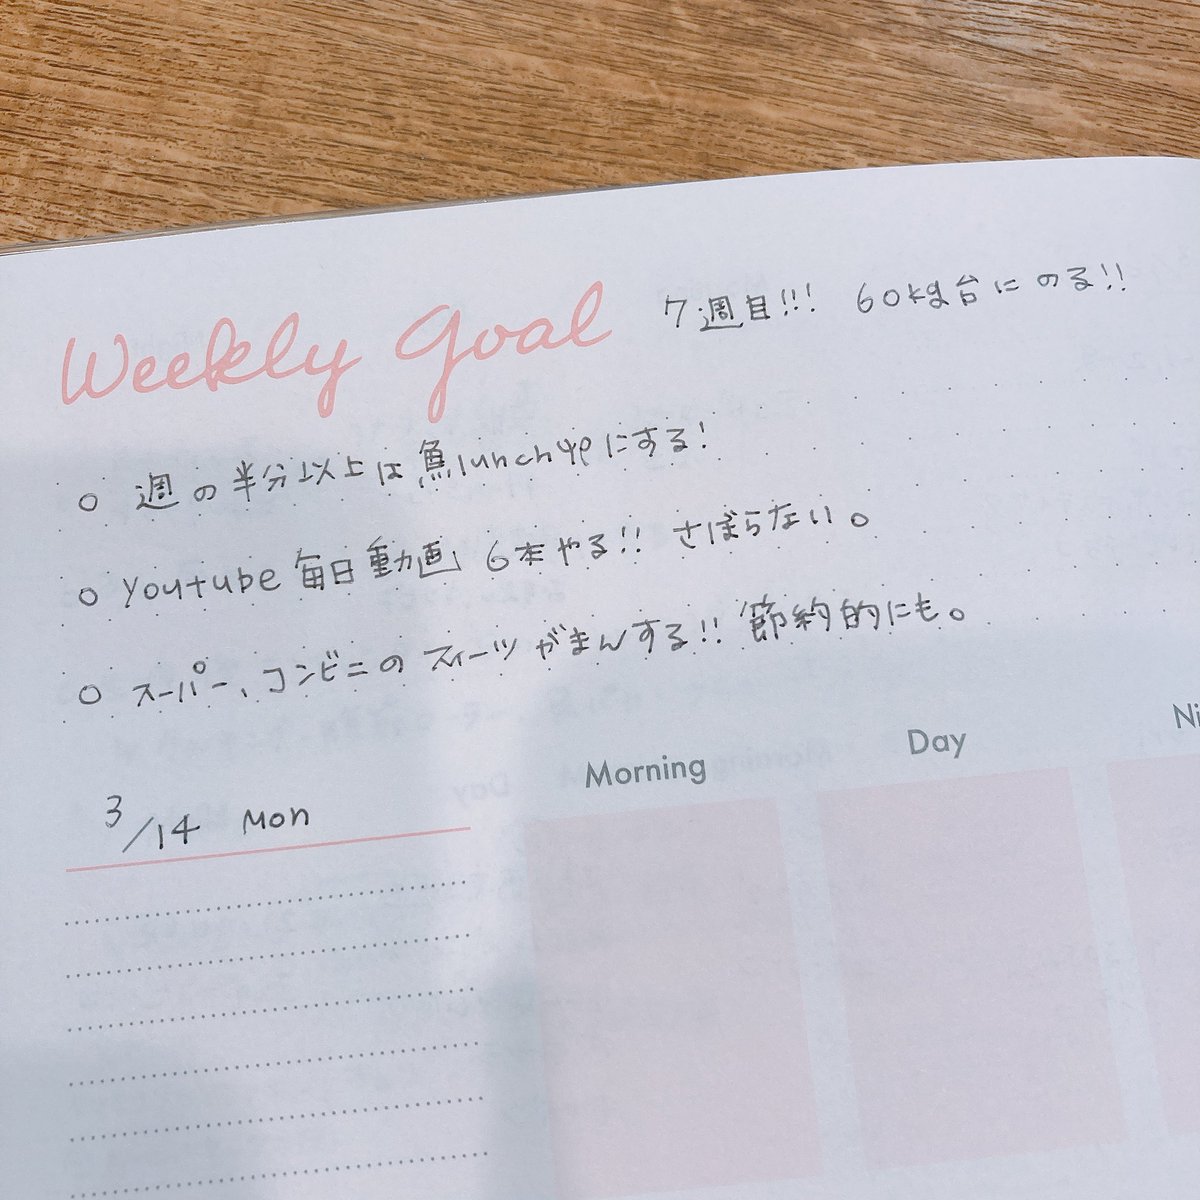 Weekly Goal 7週目!!! 60kg台にのる!!
○ 週の半分以上は魚lunch中心にする!
○ Youtube 毎日動画 6本やる!! さぼらない。
○ スーパー、コンビニのスイーツがまんする!! 節約的にも。
Morning Day Ni
3/14 Mon